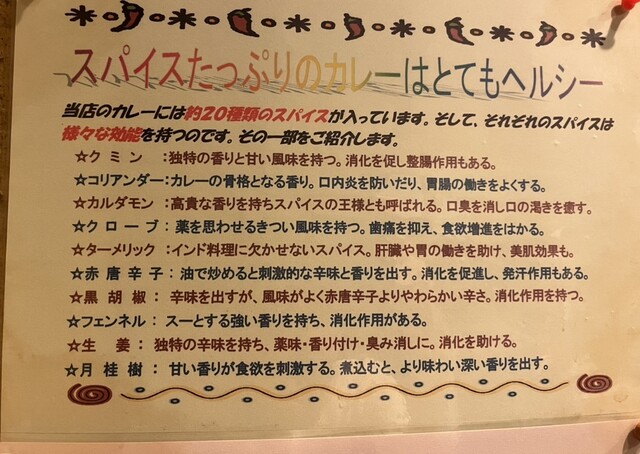 スパイスたっぷりのカレーはとてもヘルシー
当店のカレーには約20種類のスパイスが入っています。そして、それぞれのスパイスは
様々な効能を持つのです。その一部をご紹介します。
☆クミン：独特の香りと甘い風味を持つ。消化を促し整腸作用もある。
☆コリアンダー：カレーの骨格となる香り。口内炎を防いだり、胃腸の働きをよくする。
☆カルダモン：高貴な香りを持ちスパイスの王様とも呼ばれる。口臭を消し口の渇きを癒す。
☆クローブ：薬を思わせるきつい風味を持つ。歯痛を抑え、食欲増進をはかる。
☆ターメリック：インド料理に欠かせないスパイス。肝臓や胃の働きを助け、美肌効果も。
☆赤唐辛子：油で炒めると刺激的な辛味と香りを出す。消化を促進し、発汗作用もある。
☆黒胡椒：辛味を出すが、風味がよく赤唐辛子よりやわらかい辛さ。消化作用を持つ。
☆フェンネル：スーとする強い香りを持ち、消化作用がある。
☆生姜：独特の辛味を持ち、薬味・香り付け・臭み消しに。消化を助ける。
☆月桂樹：甘い香りが食欲を刺激する。煮込むと、より味わい深い香りを出す。